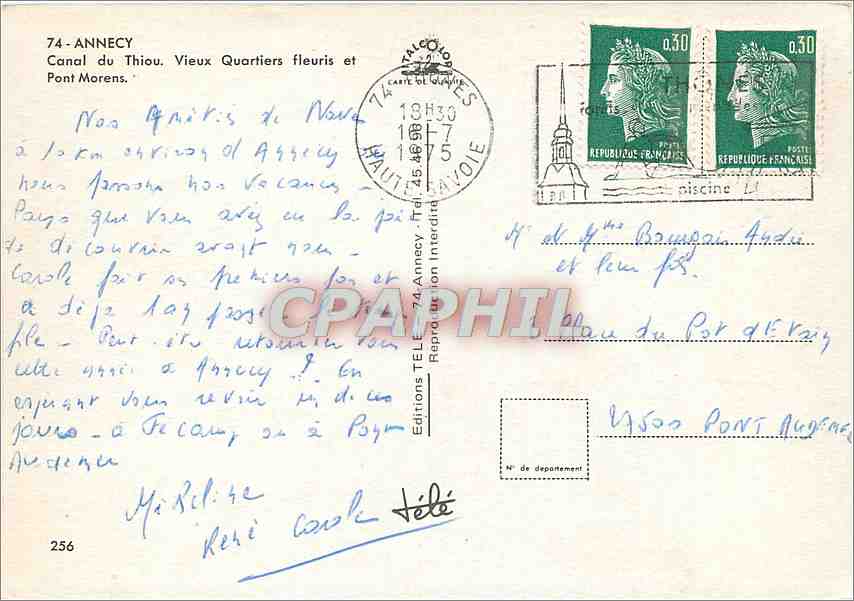 74 - ANNECY
Canal du Thiou. Vieux Quartiers fleuris et
Pont Morens.
CARTE DE QUALITÉ
18H30
1975
HAUTE-SAVOIE
0,30
0,30
POSTE
POSTE
REPUBLIQUE FRANÇAISE
REPUBLIQUE FRANÇAISE
piscine
de
à 10 km environ d'Annecy
nous passons nos vacances
que vous avez eu la joie
de découvrir avant nous -
Carole fait ses premiers pas et
a déjà
Peut être retournerez vous
cette année à Annecy ? En
espérant vous revoir un de ces
jours - à Fécamp ou à Pont
Audemer
Micheline
René Carole
télé
256
Editions TELE 74-Annecy - Tél. 45.46.96
Reproduction Interdite
CPAPHIL
Mr et Mme Bourgois André
et leur fils
Place du Pot d'Etain
27500 PONT AUDEMER
N° de département